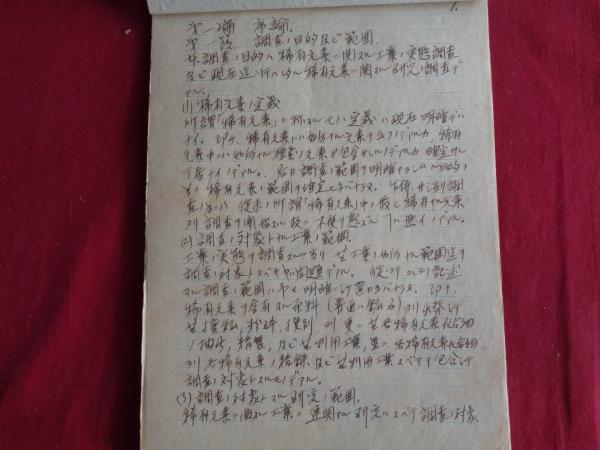 1.
第一編 序論.
第一節 調査ノ目的及ビ範囲.
本調査ノ目的ハ稀有元素ニ関スル工業ノ実態調査
及ビ現在迄ニ行ハレタル稀有元素ニ関スル研究ノ調査デ
アル.
(1) 稀有元素ノ定義
所謂「稀有元素」ト称スルモノノ定義ハ現在明確デハ
ナイ. 即チ、稀有元素トハ如何ナル元素ヲ云フノデアルカ 稀有
元素中ニハ如何ナル種類ノ元素ガ包含サレルノデアルカ確定サレ
テ居ナイノデアル. 今日調査ノ範囲ヲ明確ナラシムル目的ノ
稀有元素ノ範囲ヲ確定セネバナラヌ. 乍併
従来ノ所謂「稀有元素」中ノ最モ稀有ナル元素
ヨリ調査ヲ開始スル故ニ不便ヲ感ズル事ハ無イノデアル.
(2) 調査ノ対象トナル工業ノ範囲.
工業ノ実態ヲ調査スルニ当リ 其工業ノ如何ナル範囲迄ヲ
調査ノ対象トスベキヤハ問題デアル. 従ッテ 記述
スル調査ノ範囲ハ 明確ニシテ置カネバナラヌ. 即チ
稀有元素ヲ含有スル原料 ヨリ出発シテ
其採鉱, 粉砕, 撰別, ヨリ更ニ其各稀有元素化合物
ノ抽出, 精製, 及ビ其利用工業, 並ニ 各稀有元素化合物
ヨリ各稀有元素ノ精錬 及ビ其利用工業スベテヲ包含シテ
調査ノ対象トスルモノデアル.
(3) 調査ノ対象トスル研究ノ範囲.
稀有元素ニ関スル工業ニ連関アル研究ハスベテ調査ノ対象